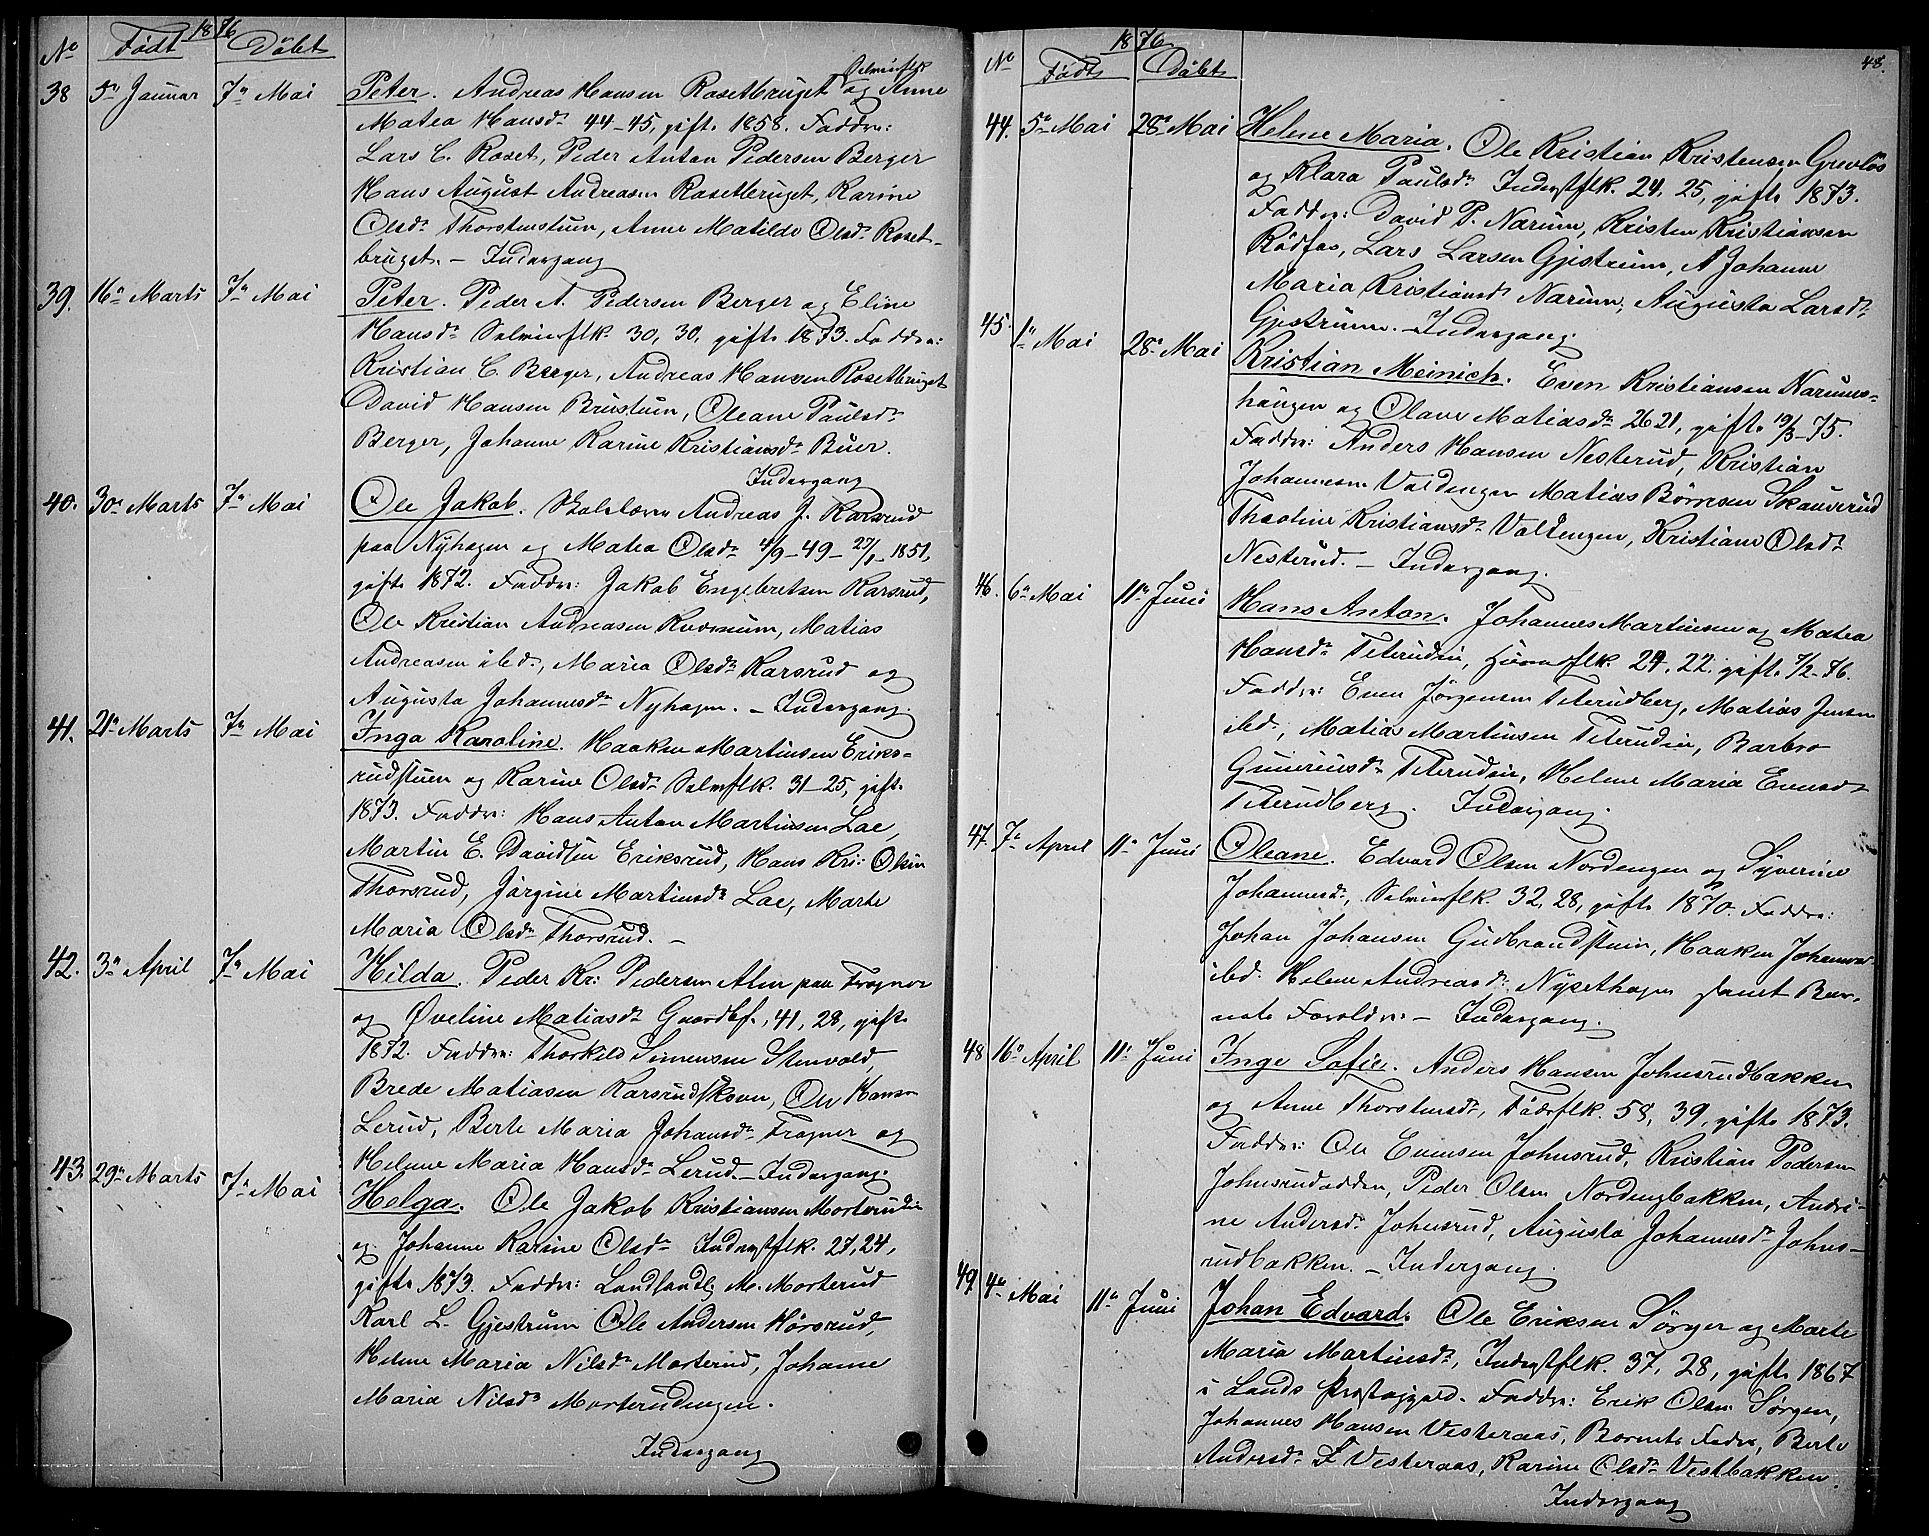 1876
No Födt Döbt
38 5te Januar 7de Mai Peter. Andreas Hansen Rosetbruget og Anne
Selveierflk
Matea Hansdr 44-45, gift 1858. Faddre:
Lars C. Roset, Peder Anton Pedersen Berger
Hans August Andreasen Rosetbruget, Karine
Olsdr Thorstenstuen, Anne Matilde Olsdr Roset-
bruget. - Indergang
39. 16de Marts 7de Mai Peter. Peder A. Pedersen Berger og Eline
Hansdr Selveierflk. 30, 30, gifte 1873. Faddre:
Kristian C. Berger, Andreas Hansen Rosetbruget
David Hansen Brustuen, Oleane Paulsdr
Berger, Johanne Karine Kristiansdr Buer.
Indergang
40. 30te Marts 7de Mai Ole Jakob. Skolelærer Andreas J. Karsrud
paa Nyhagen og Matea Olsdr 4/9-49- 1851,
gifte 1872. Faddre: Jakob Engebretsen Karsrud,
Ole Kristian Andreasen Kværnum, Matias
Andreasen ibd., Maria Olsdr Karsrud og
Augusta Johannesdr Nyhagen. - Indergang.
41. 21de Marts 7de Mai Inga Karoline. Haaken Martinsen Eriks-
rudstuen og Karine Olsdr Selveierflk. 31-25, gift.
1873. Faddre: Hans Anton Martinsen Lae,
Martin E. Davidsen Eriksrud, Hans Kr: Olsen
Thorsrud, Jörgine Martinsdr Lae, Marte
Maria Olsdr Thorsrud. -
42. 3de April 7de Mai Hilda. Peder Kr: Pedersen Alm paa Frogner
og Öveline Matiasdr Gaardbf., 41, 28, gifte
1872. Faddre: Thorkild Simensen Stenvold,
Brede Matiasen Karsrud, Ole Hansen
Lerud, Berte Maria Johansdr Frogner og
Helene Maria Hansdr Lerud. - Indergang.
43. 29de Marts 7de Mai Helga. Ole Jakob Kristiansen Morterudeie
og Johanne Karine Olsdr Inderstflk. 27, 24,
gifte 1873. Faddre: Landhandl M. Morterud
Karl L. Gjestrum Ole Andersen Hörsrud,
Helene Maria Nilsdr Morterud, Johanne
Maria Nilsdr Morterudengen.
Indergang
48.
1876
No Födt Döbt
44. 5te Mai 28de Mai Helene Maria. Ole Kristian Kristensen Grevlös
og Klara Paulsdr Inderstflk. 24, 25, gifte 1873.
Faddre: David P. Narum, Kristen Kristiansen
Rödfos, Lars Larsen Gjestrum, Johanne
Maria Kristiansdr Narum, Augusta Larsdr
Gjestrum. - Indergang.
45. 1te Mai 28de Mai Kristian Meinich. Even Kristiansen Narums-
haugen og Olave Matiasdr 26 21, gifte 19/3-75.
Faddre: Anders Hansen Nesterud, Kristian
Johannesen Valdengen Matias Börresen Skauerud
Theoline Kristiansdr Valtengen, Kristiane Olsdr
Nesterud. - Indergang.
46. 6te Mai 11te Juni Hans Anton. Johannes Martinsen og Matea
Hansdr Teterudeie, Huusmflk. 24, 22. gifte 7/2-76.
Faddre: Even Jörgensen Teterudberg, Matias Jensen
ibd., Matias Martinsen Teterudeie, Barbro
Gunneriusdr Teterudeie, Helene Maria Evensdr
Teterudberg. Indergang.
47. 7de April 11te Juni Oleane. Edvard Olsen Nordengen og Syverine
Johannesdr, Selveierflk. 32, 28, gifte 1870. Faddre:
Johan Johansen Gudbrandstuen, Haaken Johansen
ibd. Helene Andreasdr Nysethagen samt Bar-
nets Forældre. - Indergang.
48 16de April 11te Juni Inge Sofie. Anders Hansen Johnsrudbakken
og Anne Thorstensdr, Föderflk. 58, 39, gifte 1873.
Faddre: Ole Evensen Johnsrud, Kristian Pedersen
Johnsrudodden, Peder Olsen Nordengbakken, Andri-
ne Andersdr Johnsrud, Augusta Johannesdr Johns-
rudbakken. - Indergang.
49 4de Mai 11te Juni Johan Edvard. Ole Eriksen Sörgen og Marte
Maria Martinsdr, Inderstflk. 37, 28, gifte 1867
i Lands Præstegjæld. Faddre: Erik Olsen Sörgen,
Johannes Hansen Vesteraas, Barnets Fader, Berte
Andersdr Vesteraas, Karine Olsdr Vestbakken.
Indergang